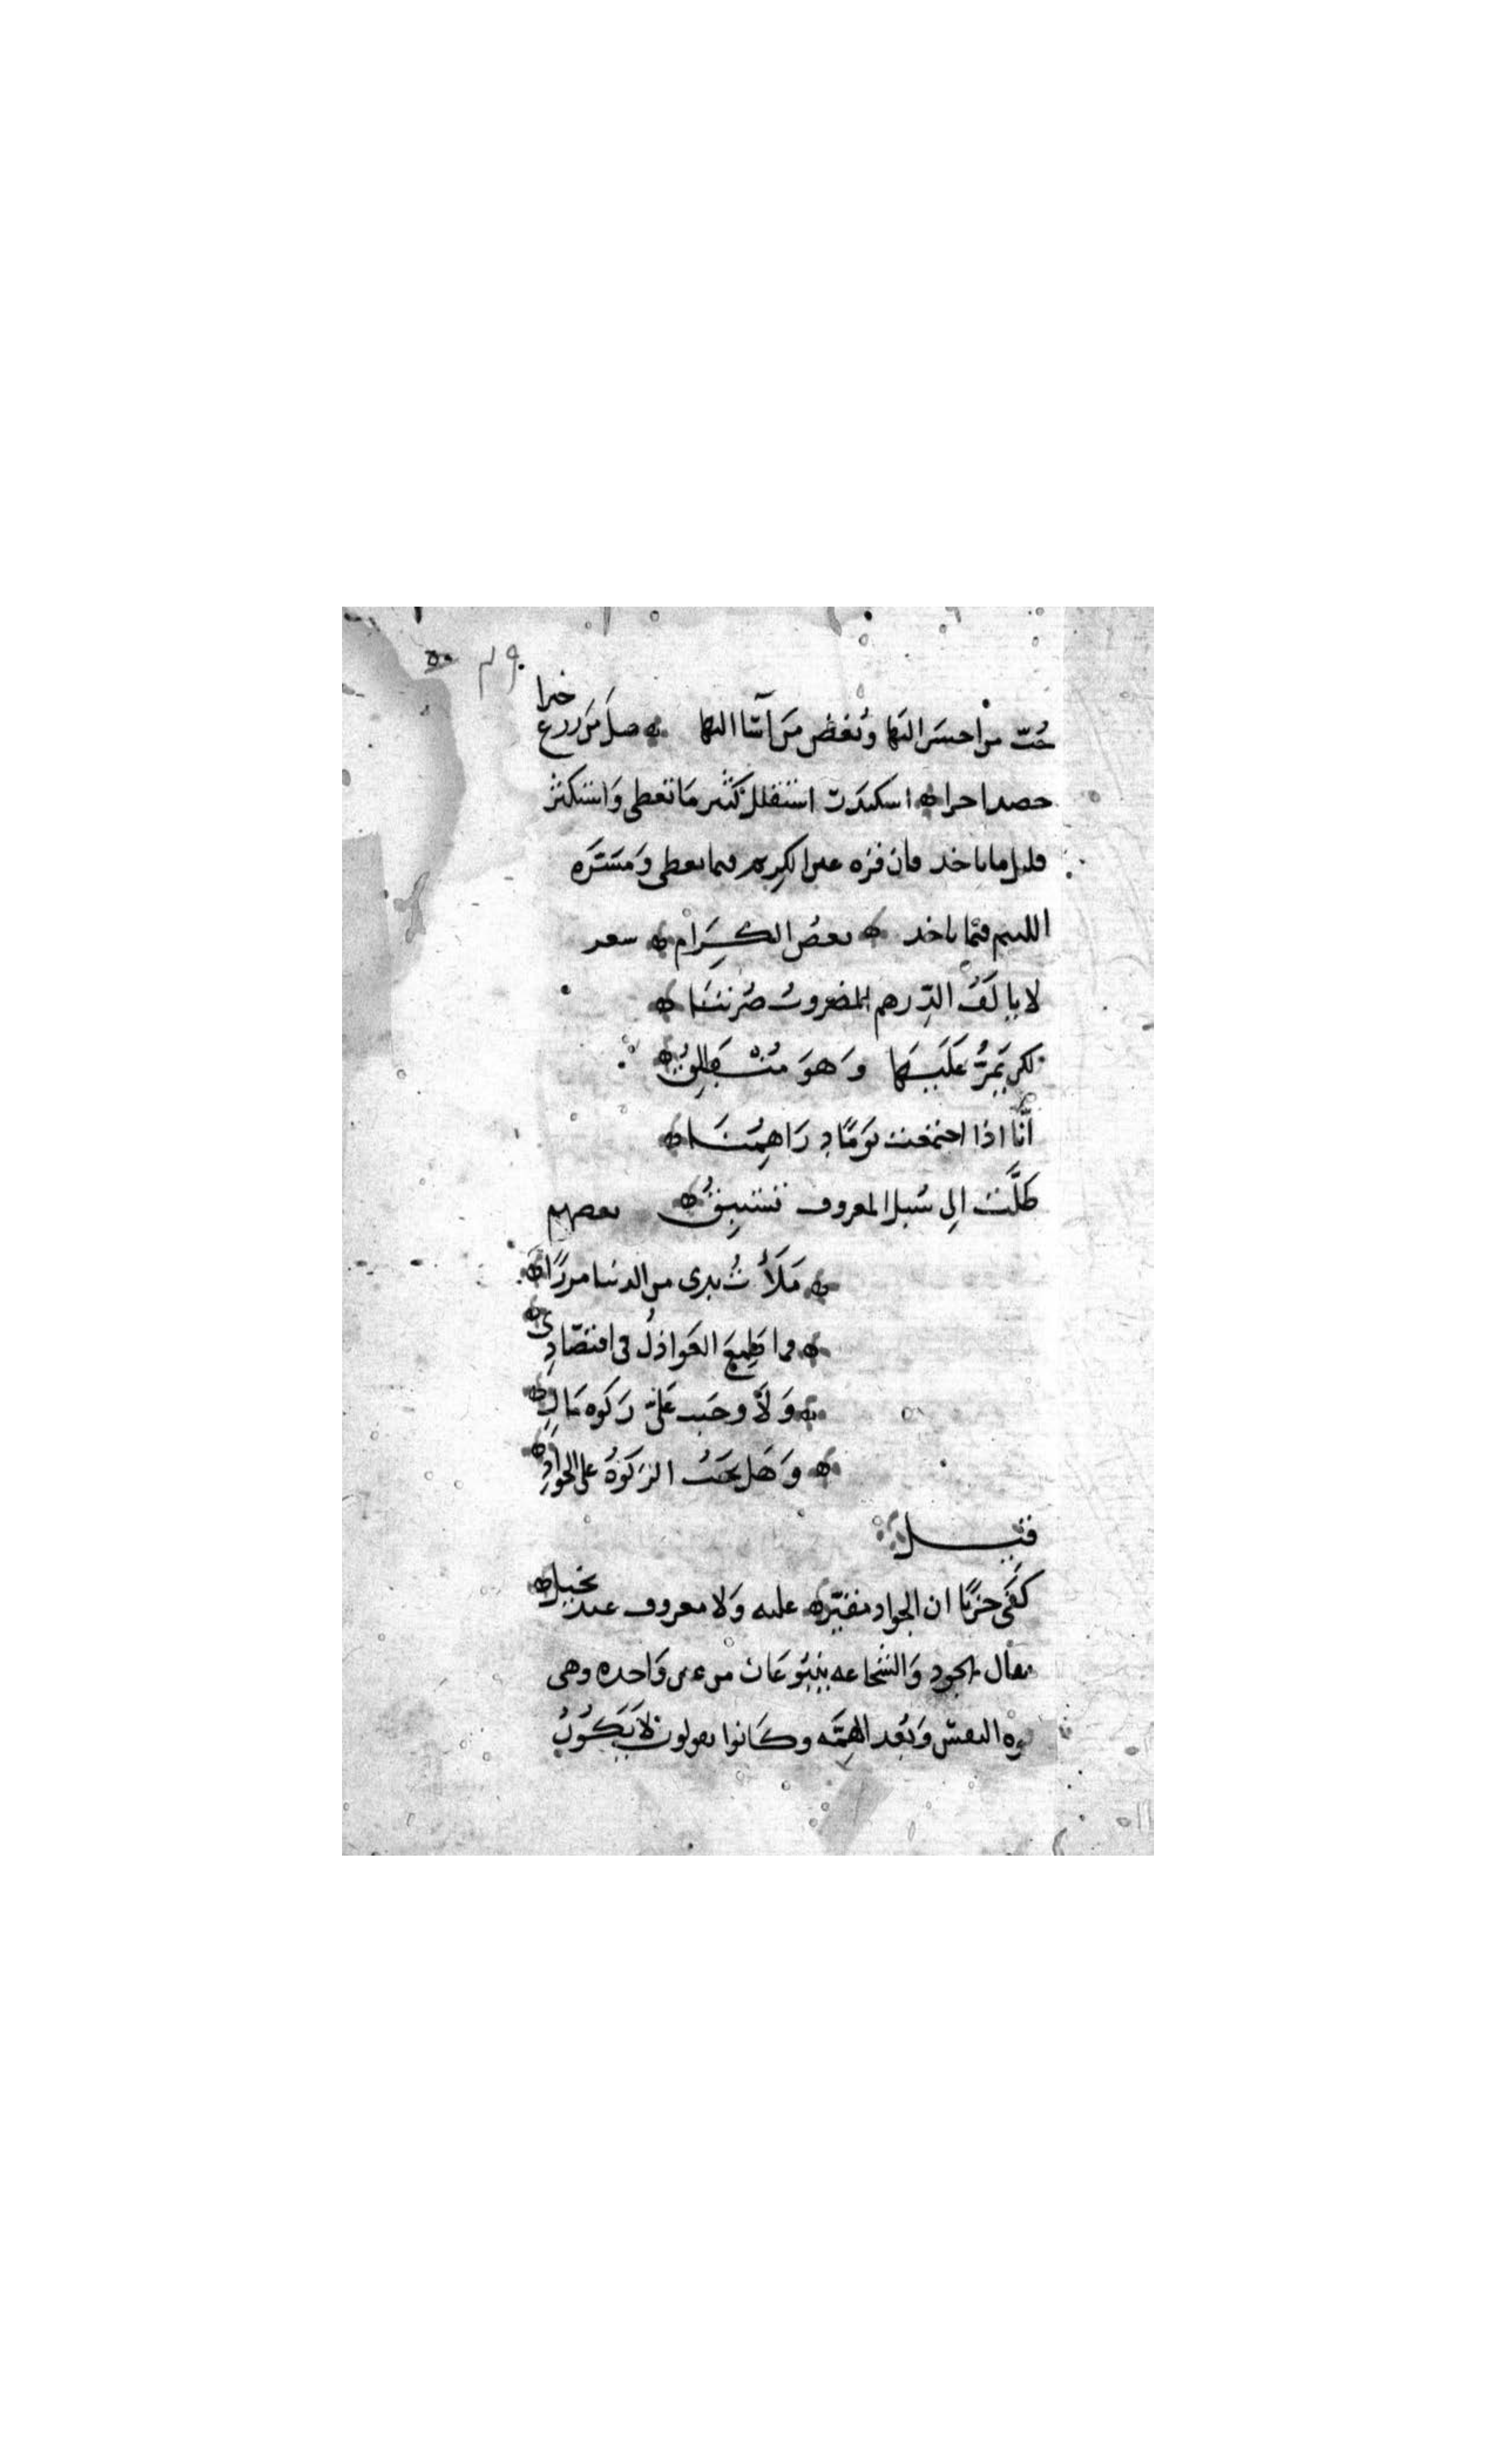 حُبّ من احسَن اليَها وَبُغض مَن آسَا اليها ۞ قيل مَن زرع خيرا
حصد اجرا ۞ اسكندر استقلل كثير مَا تعطى وَاستكثر
قليل ما ياخذ فان قره عين الكريم فيما يعطى وَمسَرَه
اللئيم فيمَا ياخذ ۞ بعضُ الكِرَام ۞ شعر
لا يالَفُ الدِّرهم المضروبُ صُرتنَا ۞
لكن يَمُرُّ عَلَيهَا وَهوَ مُنطَلِقُ ۞
أنّا اذا اجتمَعت يَومًا دَرَاهِمُنَا ۞
ظلَّت اِلى سُبل المعروف تستبِقُ ۞ بعضهم
۞ مَلَأتُ يدى من الدنيا مرارًا ۞
۞ فما طَمِعَ العَواذلُ فى اقتصَادِى ۞
۞ وَلَا وجَبت عَلىّ زكوه مَالٍ ۞
۞ وَهَل تجبُ الزَكوةُ على الجوَادِ ۞
قيل
كَفَى حزنًا ان الجواد مقتّر ۞ عليه وَلا معروف عند بخيل ۞
يقال الجود وَالشجاعه ينبُوعَان من عين وَاحده وهى
قوه النفس وَبُعد الهمَّه وكانوا يقولون لا يَكُونُ